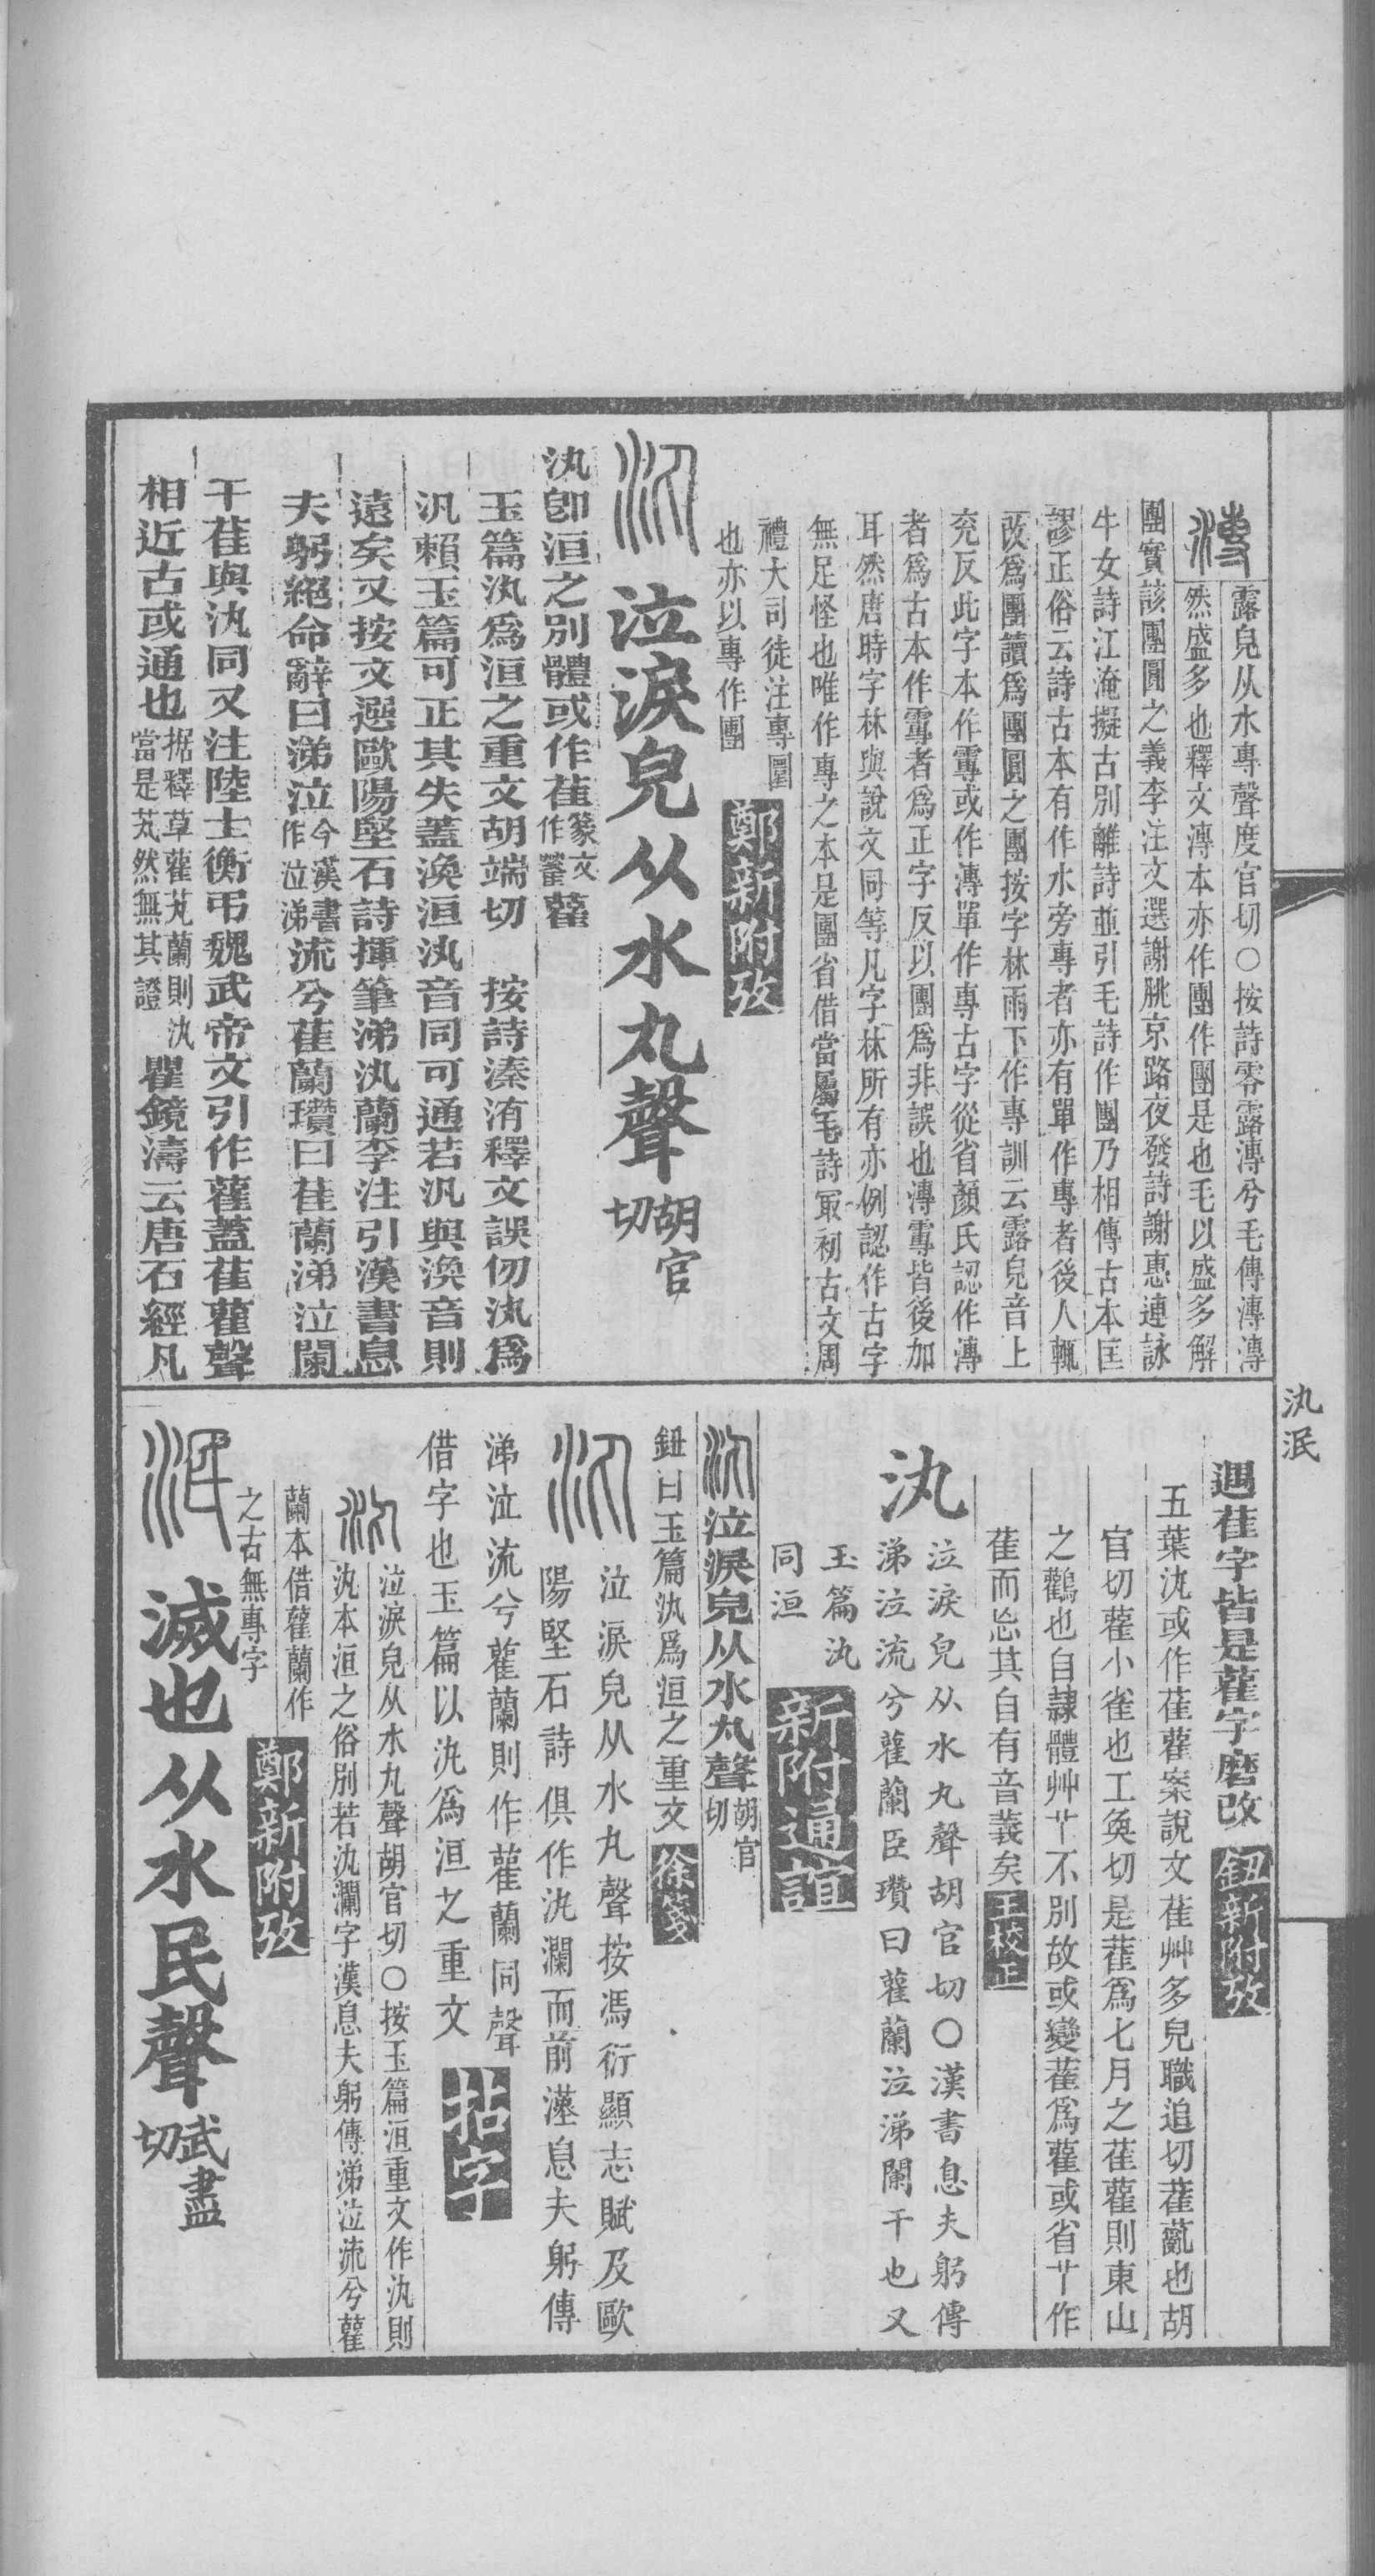 漙
露皃从水專聲度官切○按詩零露漙兮毛傳漙漙
然盛多也釋文漙本亦作團作團是也毛以盛多解
團實該團圓之義李注文選謝朓京路夜發詩謝惠連詠
牛女詩江淹擬古別離詩並引毛詩作團乃相傳古本匡
謬正俗云詩古本有作水旁專者亦有單作專者後人輒
改爲團讀爲團圓之團按字林雨下作專訓云露皃音上
兖反此字本作䨠或作漙單作專古字從省顏氏認作漙
者爲古本作䨠者爲正字反以團爲非誤也漙䨠皆後加
耳然唐時字林與說文同等凡字林所有亦例認作古字
無足怪也唯作專之本是團省借當屬毛詩冣初古文周
禮大司徒注專圜
也亦以專作團
鄭新附攷
汍
泣淚皃从水丸聲
胡官
切
汍卽洹之別體或作萑
篆文
作雚
雚
玉篇汍爲洹之重文胡端切 按詩溱洧釋文誤仞汍爲
汎賴玉篇可正其失蓋渙洹汍音同可通若汎與渙音則
遠矣又按文選歐陽堅石詩揮筆涕汍蘭李注引漢書息
夫躬絕命辭曰涕泣
今漢書
作泣涕
流兮萑蘭瓚曰萑蘭涕泣闌
干萑與汍同又注陸士衡弔魏武帝文引作雚蓋萑雚聲
相近古或通也
据釋草雚芄蘭則汍
當是芄然無其證
瞿鏡濤云唐石經凡
汍泯
遇萑字皆是雚字磨改
鈕新附攷
五葉汍或作萑雚案說文萑艸多皃職追切雚薍也胡
官切雚小雀也工奐切是雚爲七月之萑雚則東山
之鸛也自隸體艸艹不別故或變雚爲雚或省艹作
萑而㤀其自有音義矣
王校正
汍
泣淚皃从水丸聲胡官切○漢書息夫躬傳
涕泣流兮雚蘭臣瓚曰雚蘭泣涕闌干也又
玉篇汍
同洹
新附通誼
汍
泣淚皃从水丸聲
胡官
切
鈕曰玉篇汍爲洹之重文
徐箋
汍
泣淚皃从水丸聲按馮衍顯志賦及歐
陽堅石詩俱作汍瀾而前漢息夫躬傳
涕泣流兮雚蘭則作雚蘭同聲
借字也玉篇以汍爲洹之重文
拈字
汍
泣淚皃从水丸聲胡官切○按玉篇洹重文作汍則
汍本洹之俗別若汍瀾字漢息夫躬傳涕泣流兮雚
蘭本借雚蘭作
之古無專字
鄭新附攷
泯
滅也从水民聲
武盡
切